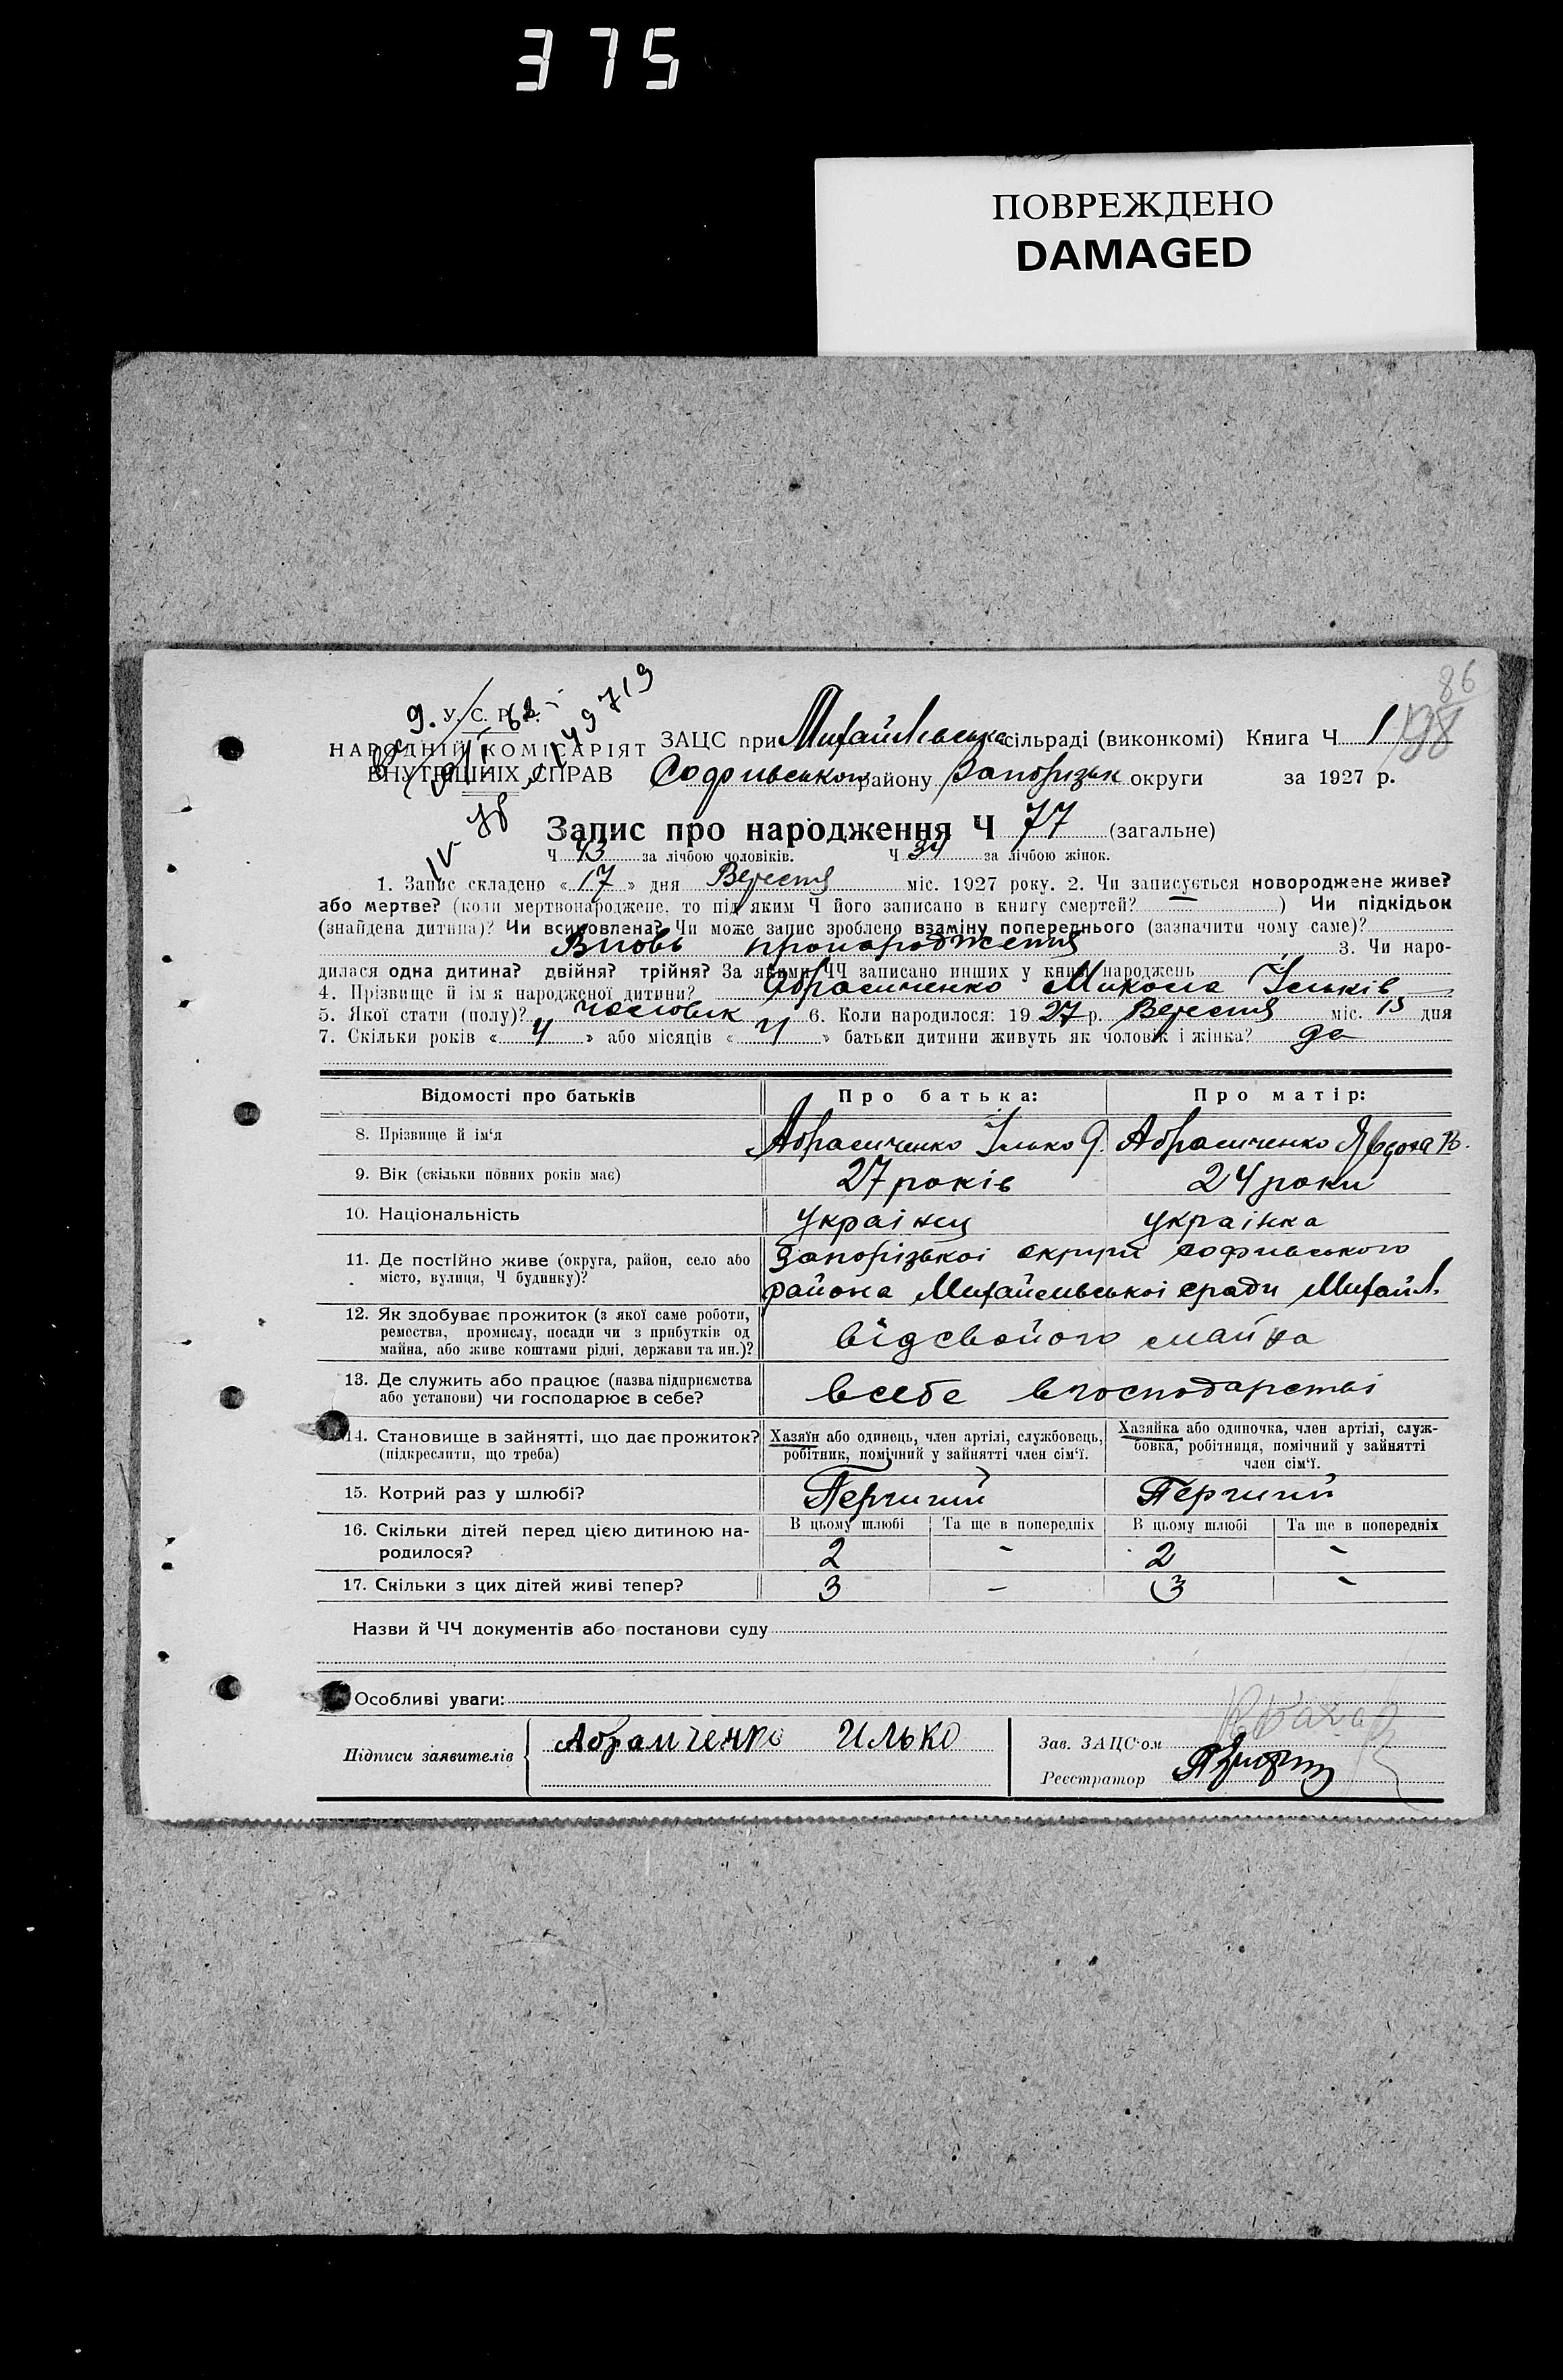 375
ПОВРЕЖДЕНО
DAMAGED
86
138
У. С. Р. Р.
НАРОДНІЙ КОМІСАРІЯТ
ВНУТРІШНІХ СПРАВ
ЗАЦС при Михайлівська сільраді (виконкомі) Книга Ч 1
Софиівського району Запорізьк округи за 1927 р.
Запис про народження Ч 77 (загальне)
Ч 43 за лічбою чоловіків. Ч 34 за лічбою жінок.
1. Запис складено « 17 » дня Вересня міс. 1927 року. 2. Чи записується новороджене живе?
або мертве? (коли мертвонароджене, то під яким Ч його записано в книгу смертей? — ) Чи підкідьок
(знайдена дитина)? Чи всиновлена? Чи може запис зроблено взаміну попереднього (зазначити чому саме)?
Вновь 3. Чи наро-
дилася одна дитина? двійня? трійня? За якими ЧЧ записано инших у книзі народжень
4. Прізвище й ім'я народженої дитини? Абрамченко Микола Ільків
5. Якої стати (полу)? чоловік 6. Коли народилося: 1927 р. Вересня міс. 15 дня
7. Скільки років « 4 » або місяців « 4 » батьки дитини живуть як чоловік і жінка? да
Відомості про батьків Про батька: Про матір:
8. Прізвище й ім'я Абрамченко Ілько Абрамченко Явдоха В.
9. Вік (скільки повних років має) 27 років 24 роки
10. Національність українец українка
11. Де постійно живе (округа, район, село або
місто, вулиця, Ч будинку)?
Запорізької округи софиівського
района Михайлівської сради Михайл.
12. Як здобуває прожиток (з якої саме роботи,
ремества, промислу, посади чи з прибутків од
майна, або живе коштами рідні, держави та ин.)?
від свойого майна
13. Де служить або працює (назва підприємства
або установи) чи господарює в себе?
всебе вгосподарстві
14. Становище в зайнятті, що дає прожиток?
(підкреслити, що треба)
Хазяїн або одинець, член артілі, службовець,
робітник, помічний у зайнятті член сім'ї.
Хазяйка або одиночка, член артілі, служ-
бовка, робітниця, помічний у зайнятті
член сім'ї.
15. Котрий раз у шлюбі? Перший Перший
16. Скільки дітей перед цією дитиною на-
родилося?
В цьому шлюбі Та ще в попередніх В цьому шлюбі Та ще в попередніх
2 - 2 -
17. Скільки з цих дітей живі тепер? 3 — 3 -
Назви й ЧЧ документів або постанови суду
Особливі уваги:
Підписи заявителів Абрамченко Илько
Зав. ЗАЦС'ом
Реєстратор